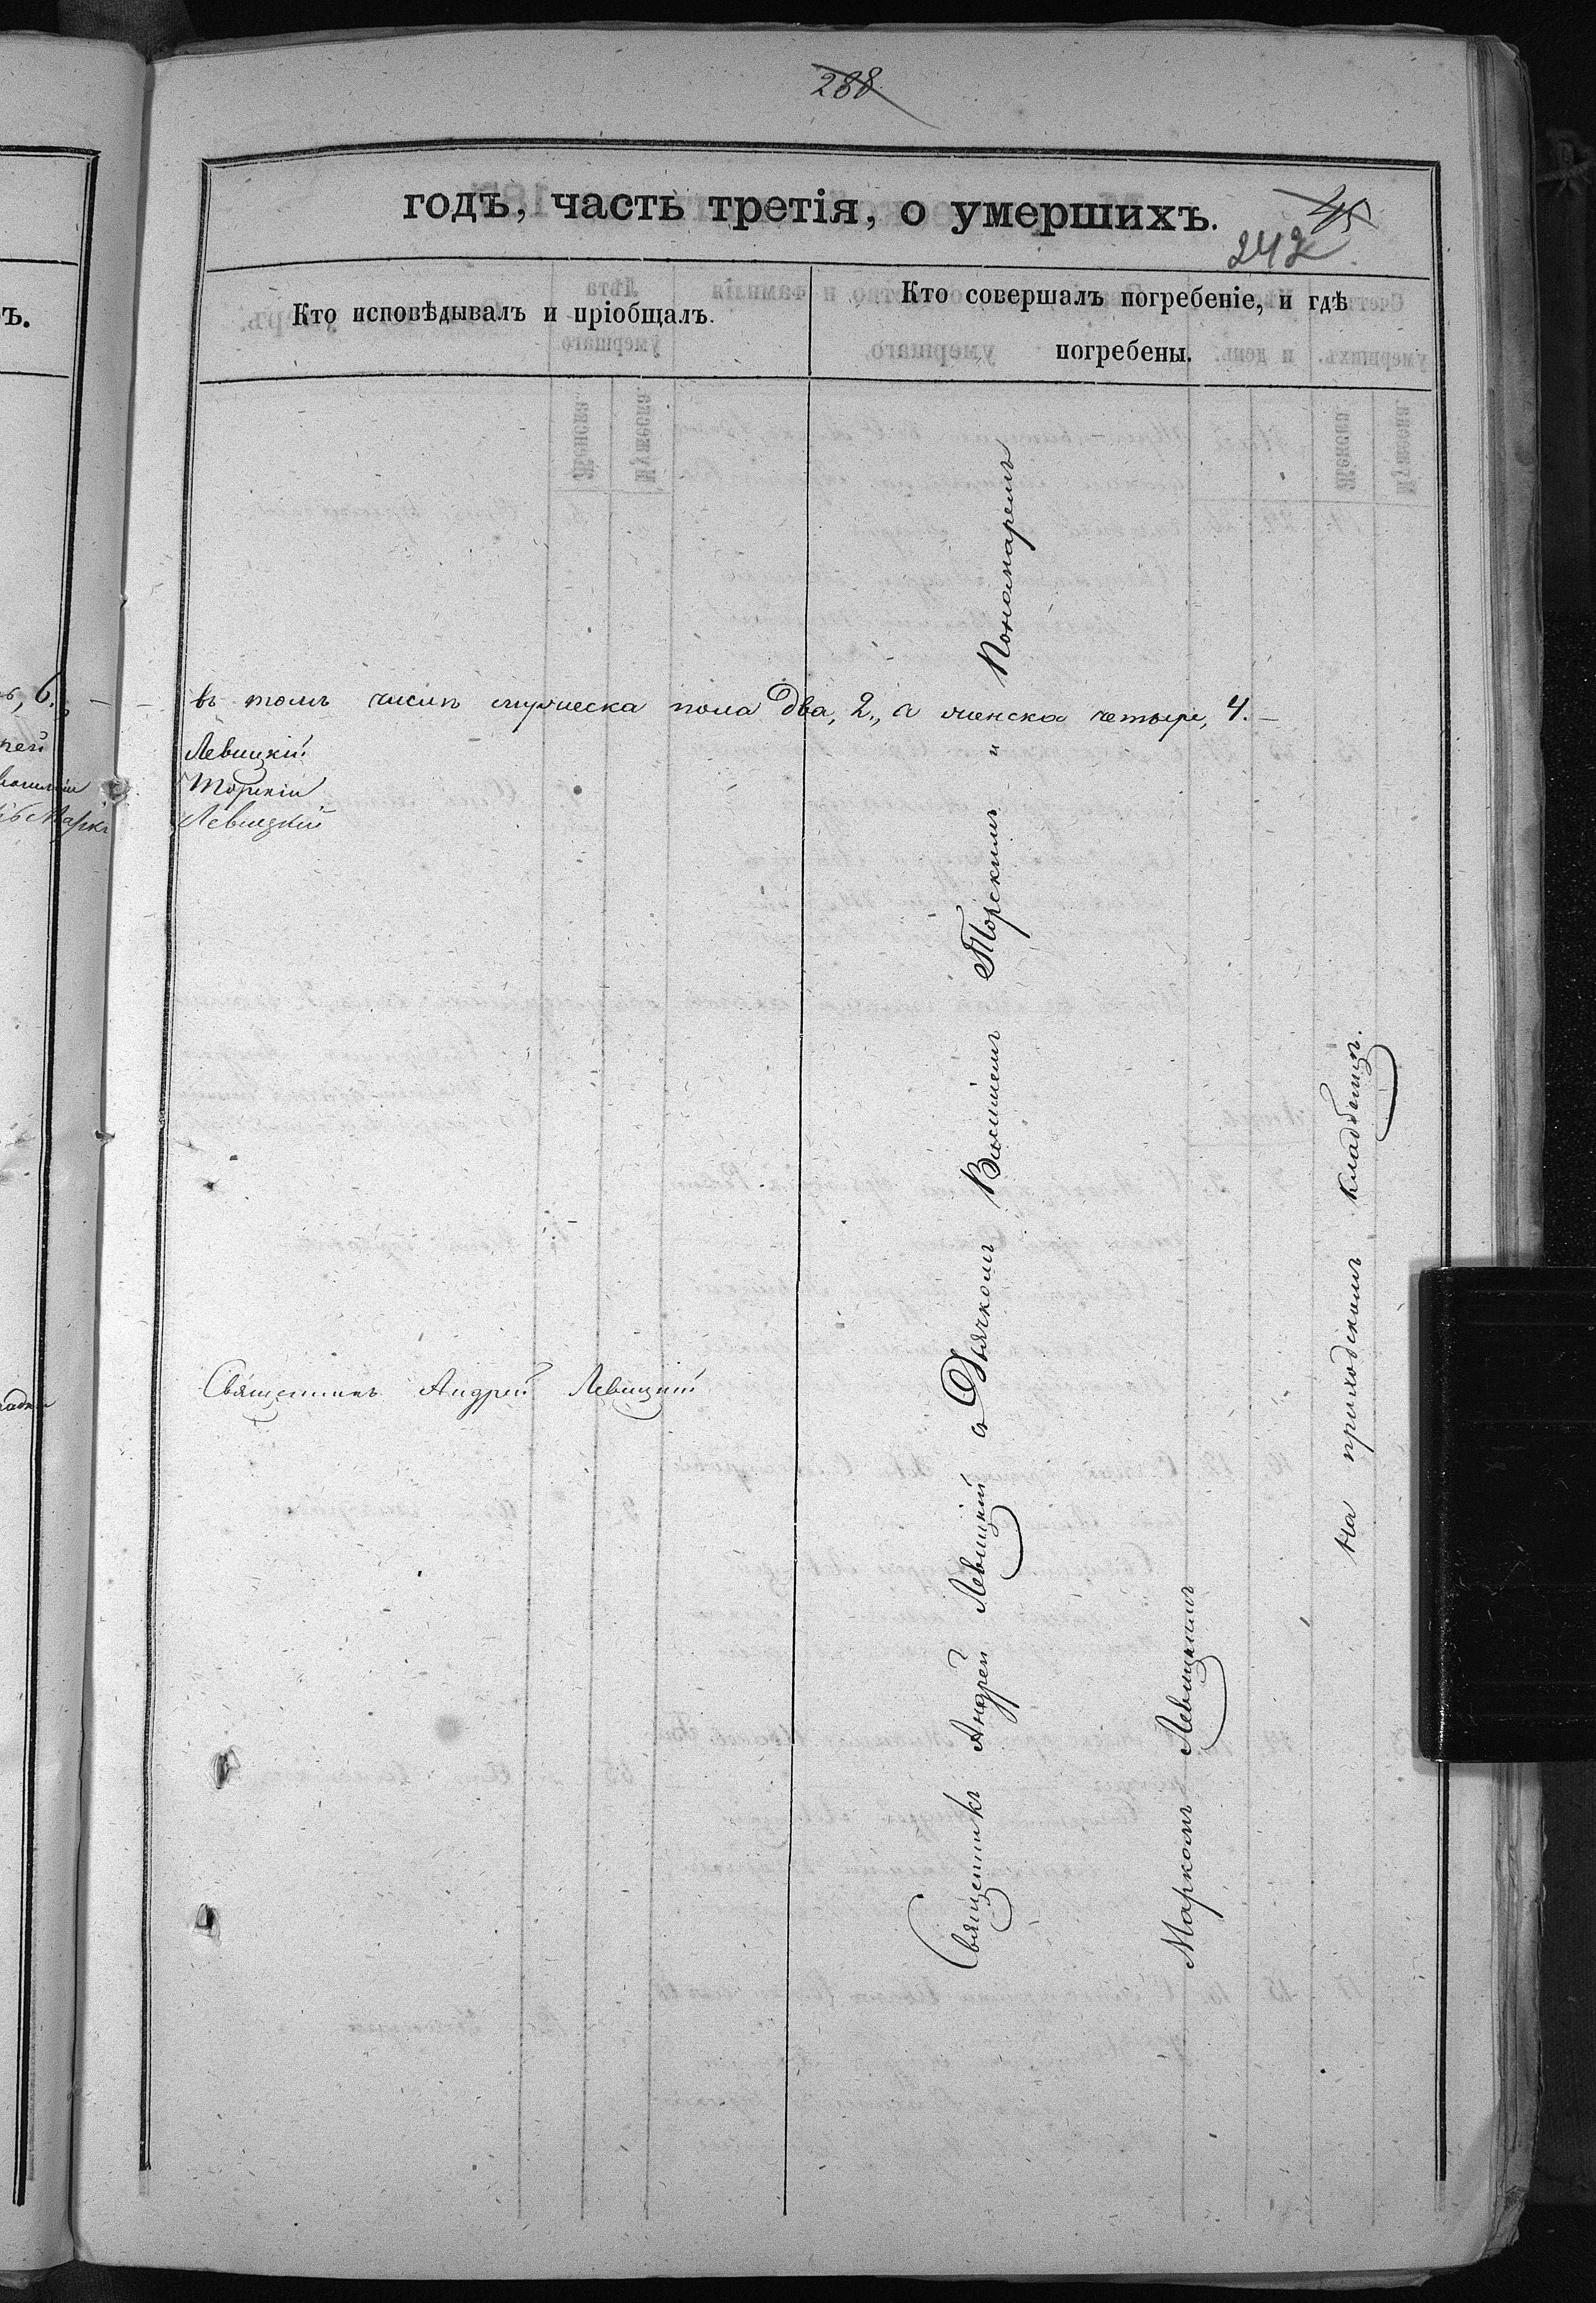 288
годъ, часть третія, о умершихъ.
45
242
Кто исповѣдывалъ и пріобщалъ.
Кто совершалъ погребеніе, и гдѣ
погребены.
ъ.
6.
въ томъ числѣ мужеска пола два, 2., а женска четыре, 4.
Левицкій
Торскій
Левицкій
Священникъ Андрей Левицкій
Священникъ Андрей Левицкій съ Дьячкомъ Василіемъ Торскимъ и Пономаремъ
Маркомъ Левицкимъ
На приходскомъ кладбищѣ.